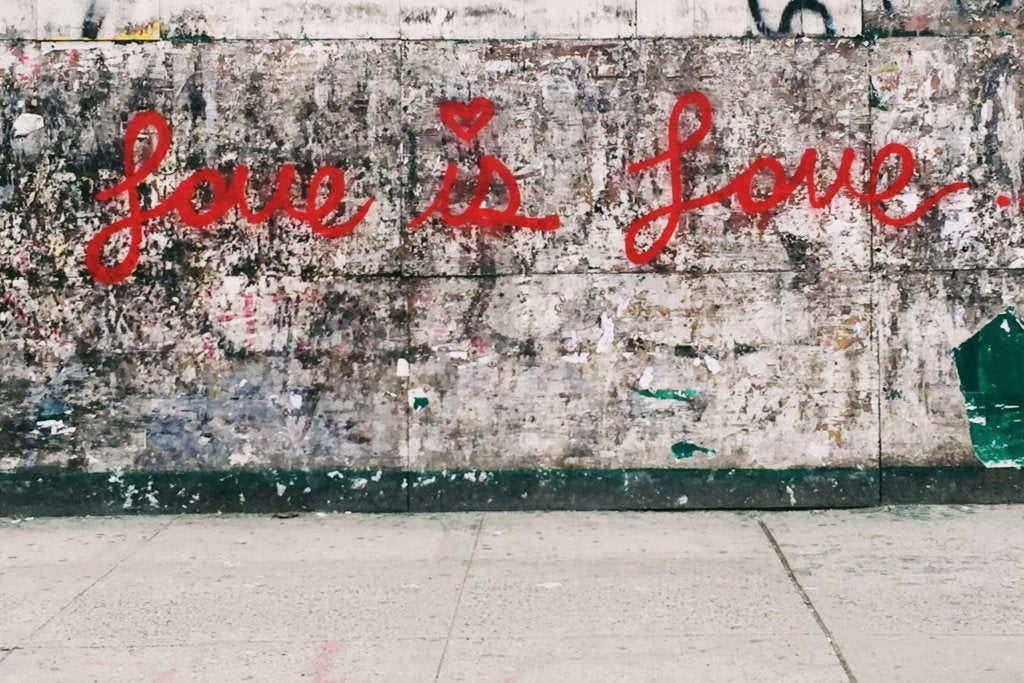 love is love..